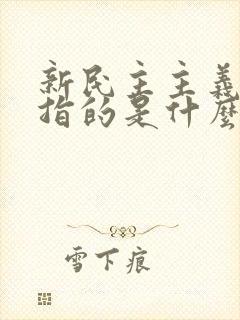 新民主主義
指的是什麼
雪下痕